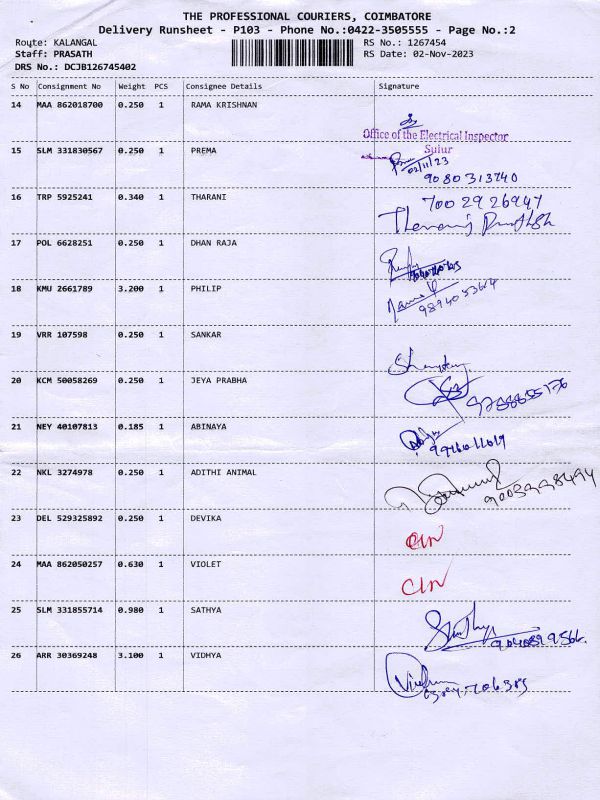 THE PROFESSIONAL COURIERS, COIMBATORE
Delivery Runsheet - P103 - Phone No.:0422-3505555 - Page No.:2
Route: KALANGAL
RS No.: 1267454
Staff: PRASATH
RS Date: 02-Nov-2023
DRS No.: DCJB126745402
S No Consignment No Weight PCS Consignee Details Signature
14 MAA 862018700 0.250 1 RAMA KRISHNAN
Office of the Electrical Inspector
Sulur
15 SLM 331830567 0.250 1 PREMA
02/11/23
9080313740
16 TRP 5925241 0.340 1 THARANI
7002926947
17 POL 6628251 0.250 1 DHAN RAJA
18 KMU 2661789 3.200 1 PHILIP
19 VRR 107598 0.250 1 SANKAR
20 KCM 50058269 0.250 1 JEYA PRABHA
21 NEY 40107813 0.185 1 ABINAYA
22 NKL 3274978 0.250 1 ADITHI ANIMAL
23 DEL 529325892 0.250 1 DEVIKA
24 MAA 862050257 0.630 1 VIOLET
25 SLM 331855714 0.980 1 SATHYA
26 ARR 30369248 3.100 1 VIDHYA